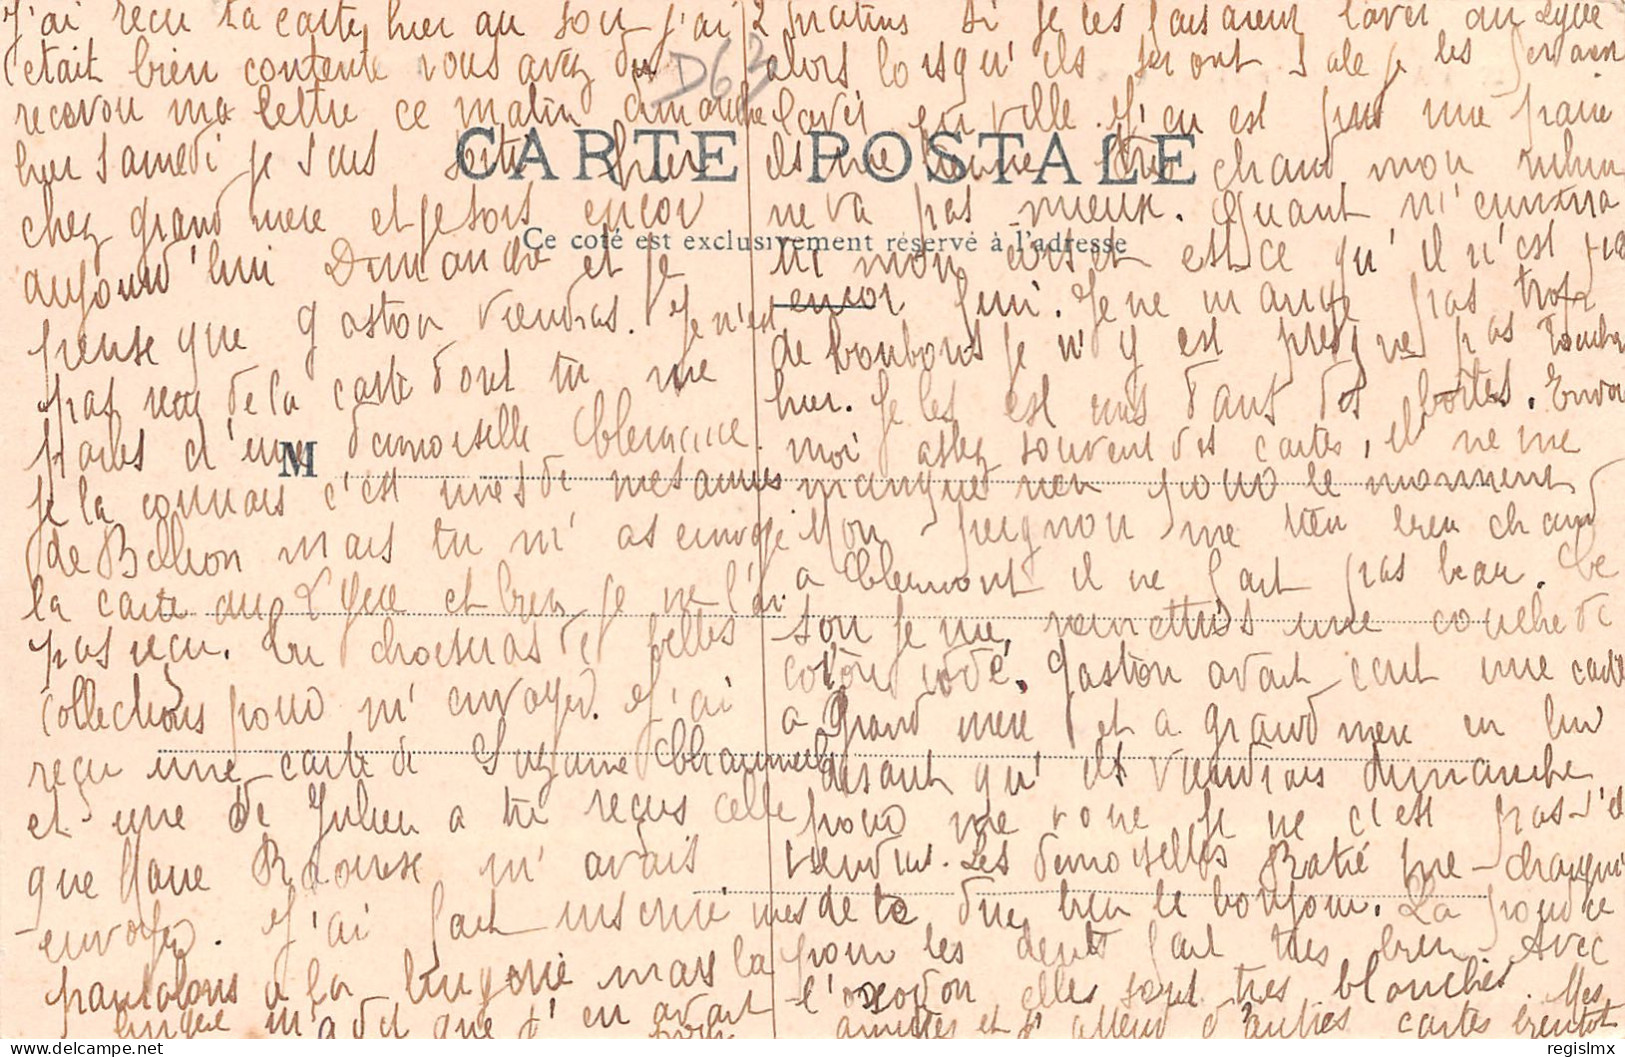 J'ai reçu ta carte hier au soir j'ai
était bien contente vous avez du
recevou ma lettre ce matin dimanche
hier samedi je suis sortu hier
chez grand mere et je sors encor
aujourd'hui Dimanche et je
pense que gaston viendras. Je n'est
pas reçu de la carte dont tu me
parles d'une demoiselle Clemence.
je la connais c'est une de mes amies
de Billion mais tu m'as envoyé
la carte au Lycee et bien je ne l'ai
pas reçu. tu choisiras de belles
collections pour m'envoyer. J'ai
reçu une carte de Suzanne Chaumeil
et une de Julien a tu reçus celle
que Marie m'avais
envoyer. J'ai fait inscrire mes
pantalons a la lingerie mais la
lingère m'a dit que j'en avait
2 matins si je les faisaient laver au Lycée
alors lorsqu'ils seront sale je les ferai
laver en ville. J'en est pris une paire
ils me tienne très chaud mon rhume
ne va pas mieux. Quant m'enverra
tu mon corset est-ce qu'il n'est pas
encor fini. Je ne mange pas trop
de bonbons je n'y est presque pas toucher
hier. Je les est mis dans des boîtes. Envoi
moi assez souvent des cartes, il ne me
manque rien pour le momment
Mon peignou me tien bien chaud
a Clermont il ne fait pas beau. Ce
soir je me remettrais une couche de
coton iodé. Gaston avait écrit une carte
a Grand mere et a grand mere en lui
disant qu'ils viendrais dimanche
pour me voire je ne c'est pas s'il
viendra. Les demoiselles Ratié me charge
de te dire bien le bonjour. La poudre
pour les dents fait très bien. Avec
l'oxodon elles sont tres blanches. Mes
amitiés et j'attend d'autres cartes bientot
D63
CARTE POSTALE
Ce coté est exclusivement réservé à l'adresse
M
© regislmx